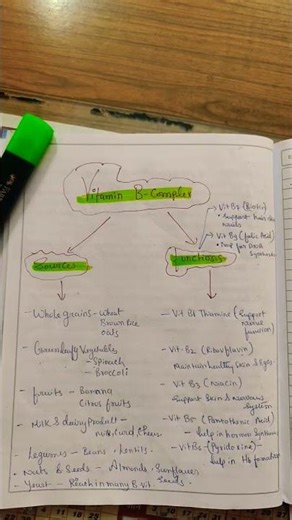 Vitamin B-Complex
Vit B7 (Biotin)
• Support hair skin
nails
Vit B9 (folic Acid)
• Imp for DNA
Synthesis
Sources
Functions
- Whole grains - Wheat
Brown Rice
oats
- Green leafy Vegetables
- Spinach
- Broccoli
- fruits - Banana
Citrus fruits
- Milk & dairy Product -
milk, curd, cheese
- Legumes - Beans, Lentils.
- Nuts & Seeds - Almonds, Sunflower
Seeds.
- Yeast - Rich in many B Vit.
- Vit B1 Thiamine (Support
nerve
function)
- Vit B2 (Riboflavin)
healthy Skin & Eyes
- Vit B3 (Niacin)
Support Skin & nervous
System
- Vit B5 (Pantothenic Acid)
- help in hormone Synthesis
- Vit B6 (Pyridoxine)
- help in Hb formation